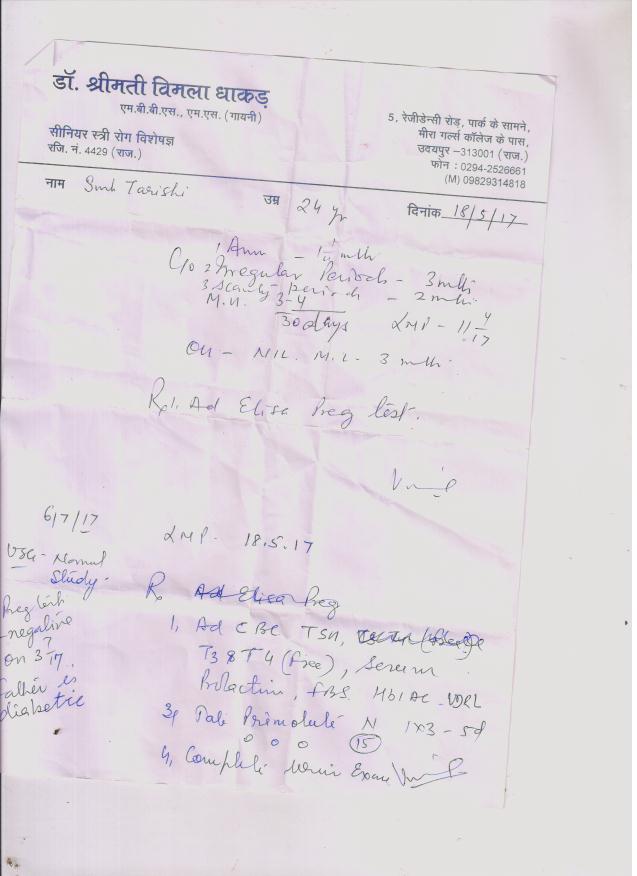 डॉ. श्रीमती विमला धाकड़
एम.बी.बी.एस., एम.एस. (गायनी)
सीनियर स्त्री रोग विशेषज्ञ
रजि. नं. 4429 (राज.)
5, रेजीडेन्सी रोड़, पार्क के सामने,
मीरा गर्ल्स कॉलेज के पास,
उदयपुर –313001 (राज.)
फोन : 0294-2526661
(M) 09829314818
नाम Smt Tarishi उम्र 24 yr दिनांक 18/5/17
1 Ann - 1 mth
C/o 2 Irregular Periods - 3 mth
3 scanty periods - 2 mth
M.H. 3-4
30 days LMP - 11/4/17
OH - NIL. M.L - 3 mth.
Rx 1. Ad Elisa Preg test.
6/7/17
LMP. 18.5.17
USG - Normal
Study.
Preg test
negative
on 3/7/17.
Father is
diabetic
R Ad Elisa Preg
1, Ad CBC TSH,
T3 & T4 (free), Serum
Prolactin, FBS. HbIAC - VDRL
3, Tab Primolute N 1x3 - 5d
o o o 15
4, Complete Urine Exam